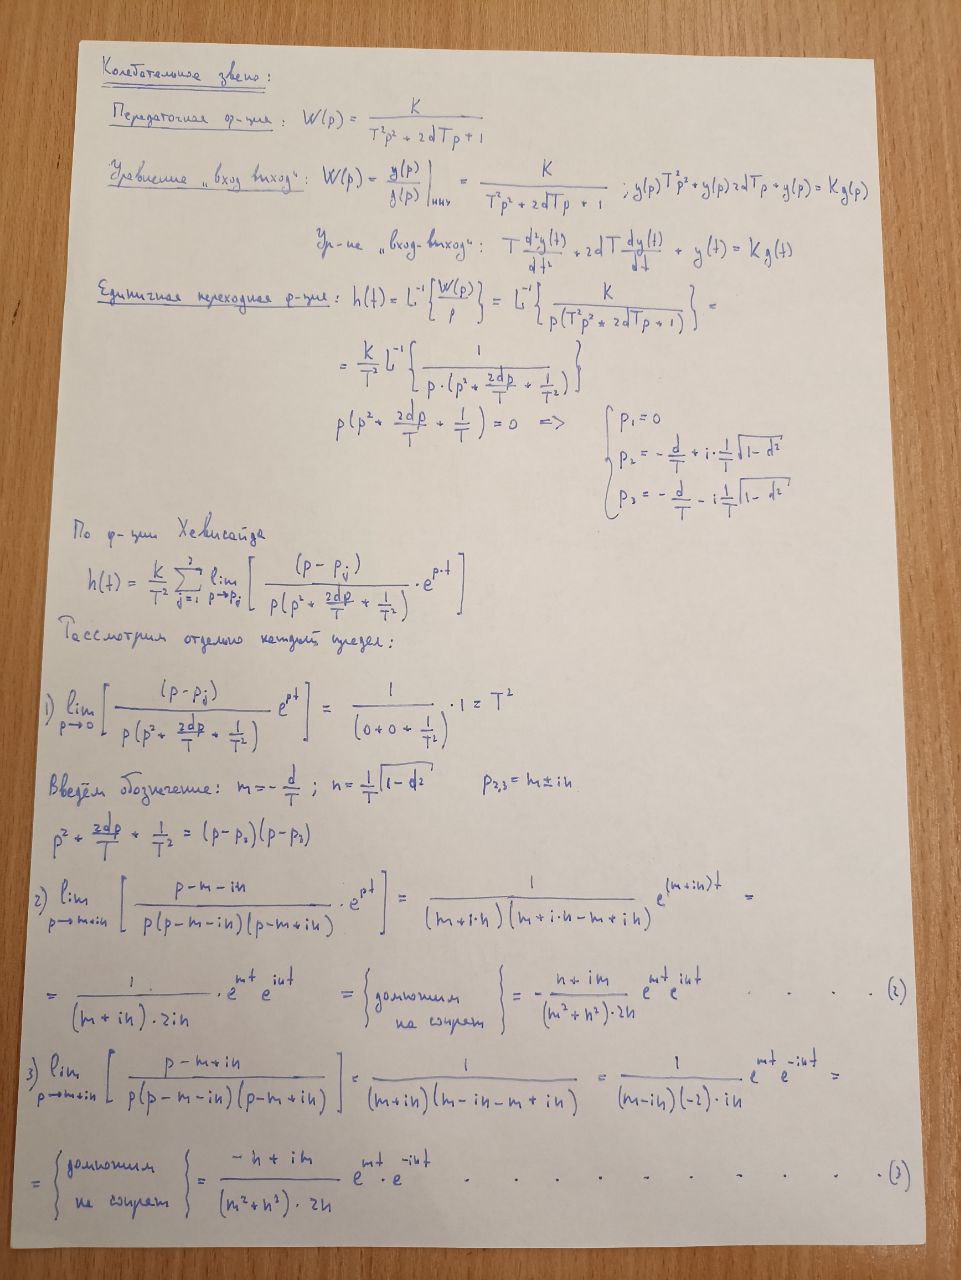 Колебательное звено:
Передаточная ф-ция: W(p) = K / (T²p² + 2dTp + 1)
Уравнение „вход выход": W(p) = y(p)/g(p) |ннч = K / (T²p² + 2dTp + 1) ; y(p)T²p² + y(p)2dTp + y(p) = Kg(p)
Ур-ие „вход-выход": T d²y(t)/dt² + 2dT dy(t)/dt + y(t) = Kg(t)
Единичная переходная ф-ция: h(t) = L⁻¹{W(p)/p} = L⁻¹{K / (p(T²p² + 2dTp + 1))} =
= K/T² L⁻¹{1 / (p·(p² + 2dp/T + 1/T²))}
p(p² + 2dp/T + 1/T) = 0 => { p₁ = 0
p₂ = -d/T + i·1/T √(1-d²)
p₃ = -d/T - i 1/T √(1-d²)
По ф-ции Хевисайда
h(t) = K/T² Σ_{j=1}^{3} lim_{p→pⱼ} [ (p-pⱼ) / (p(p² + 2dp/T + 1/T²)) · e^{p·t} ]
Рассмотрим отдельно каждый предел:
1) lim_{p→0} [ (p-pⱼ) / (p(p² + 2dp/T + 1/T²)) e^{pt} ] = 1 / (0+0+1/T²) · 1 = T²
Введём обозначение: m = -d/T ; n = 1/T √(1-d²) p₂,₃ = m ± in
p² + 2dp/T + 1/T² = (p-p₂)(p-p₃)
2) lim_{p→m+in} [ (p-m-in) / (p(p-m-in)(p-m+in)) · e^{pt} ] = 1 / ((m+i·n)(m+i·n-m+in)) e^{(m+in)t} =
= 1 / ((m+in)·2in) · e^{mt} e^{int} = {домножим на сопряж} = - (n+im) / ((m²+n²)·2n) e^{mt} e^{int} . . . . (2)
3) lim_{p→m+in} [ (p-m+in) / (p(p-m-in)(p-m+in)) ] = 1 / ((m+in)(m-in-m+in)) = 1 / ((m-in)(-2)·in) e^{mt} e^{-int} =
= {домножим на сопряж} = (-n+im) / ((m²+n²)·2n) e^{mt} · e^{-int} . . . . . . . . . . (3)